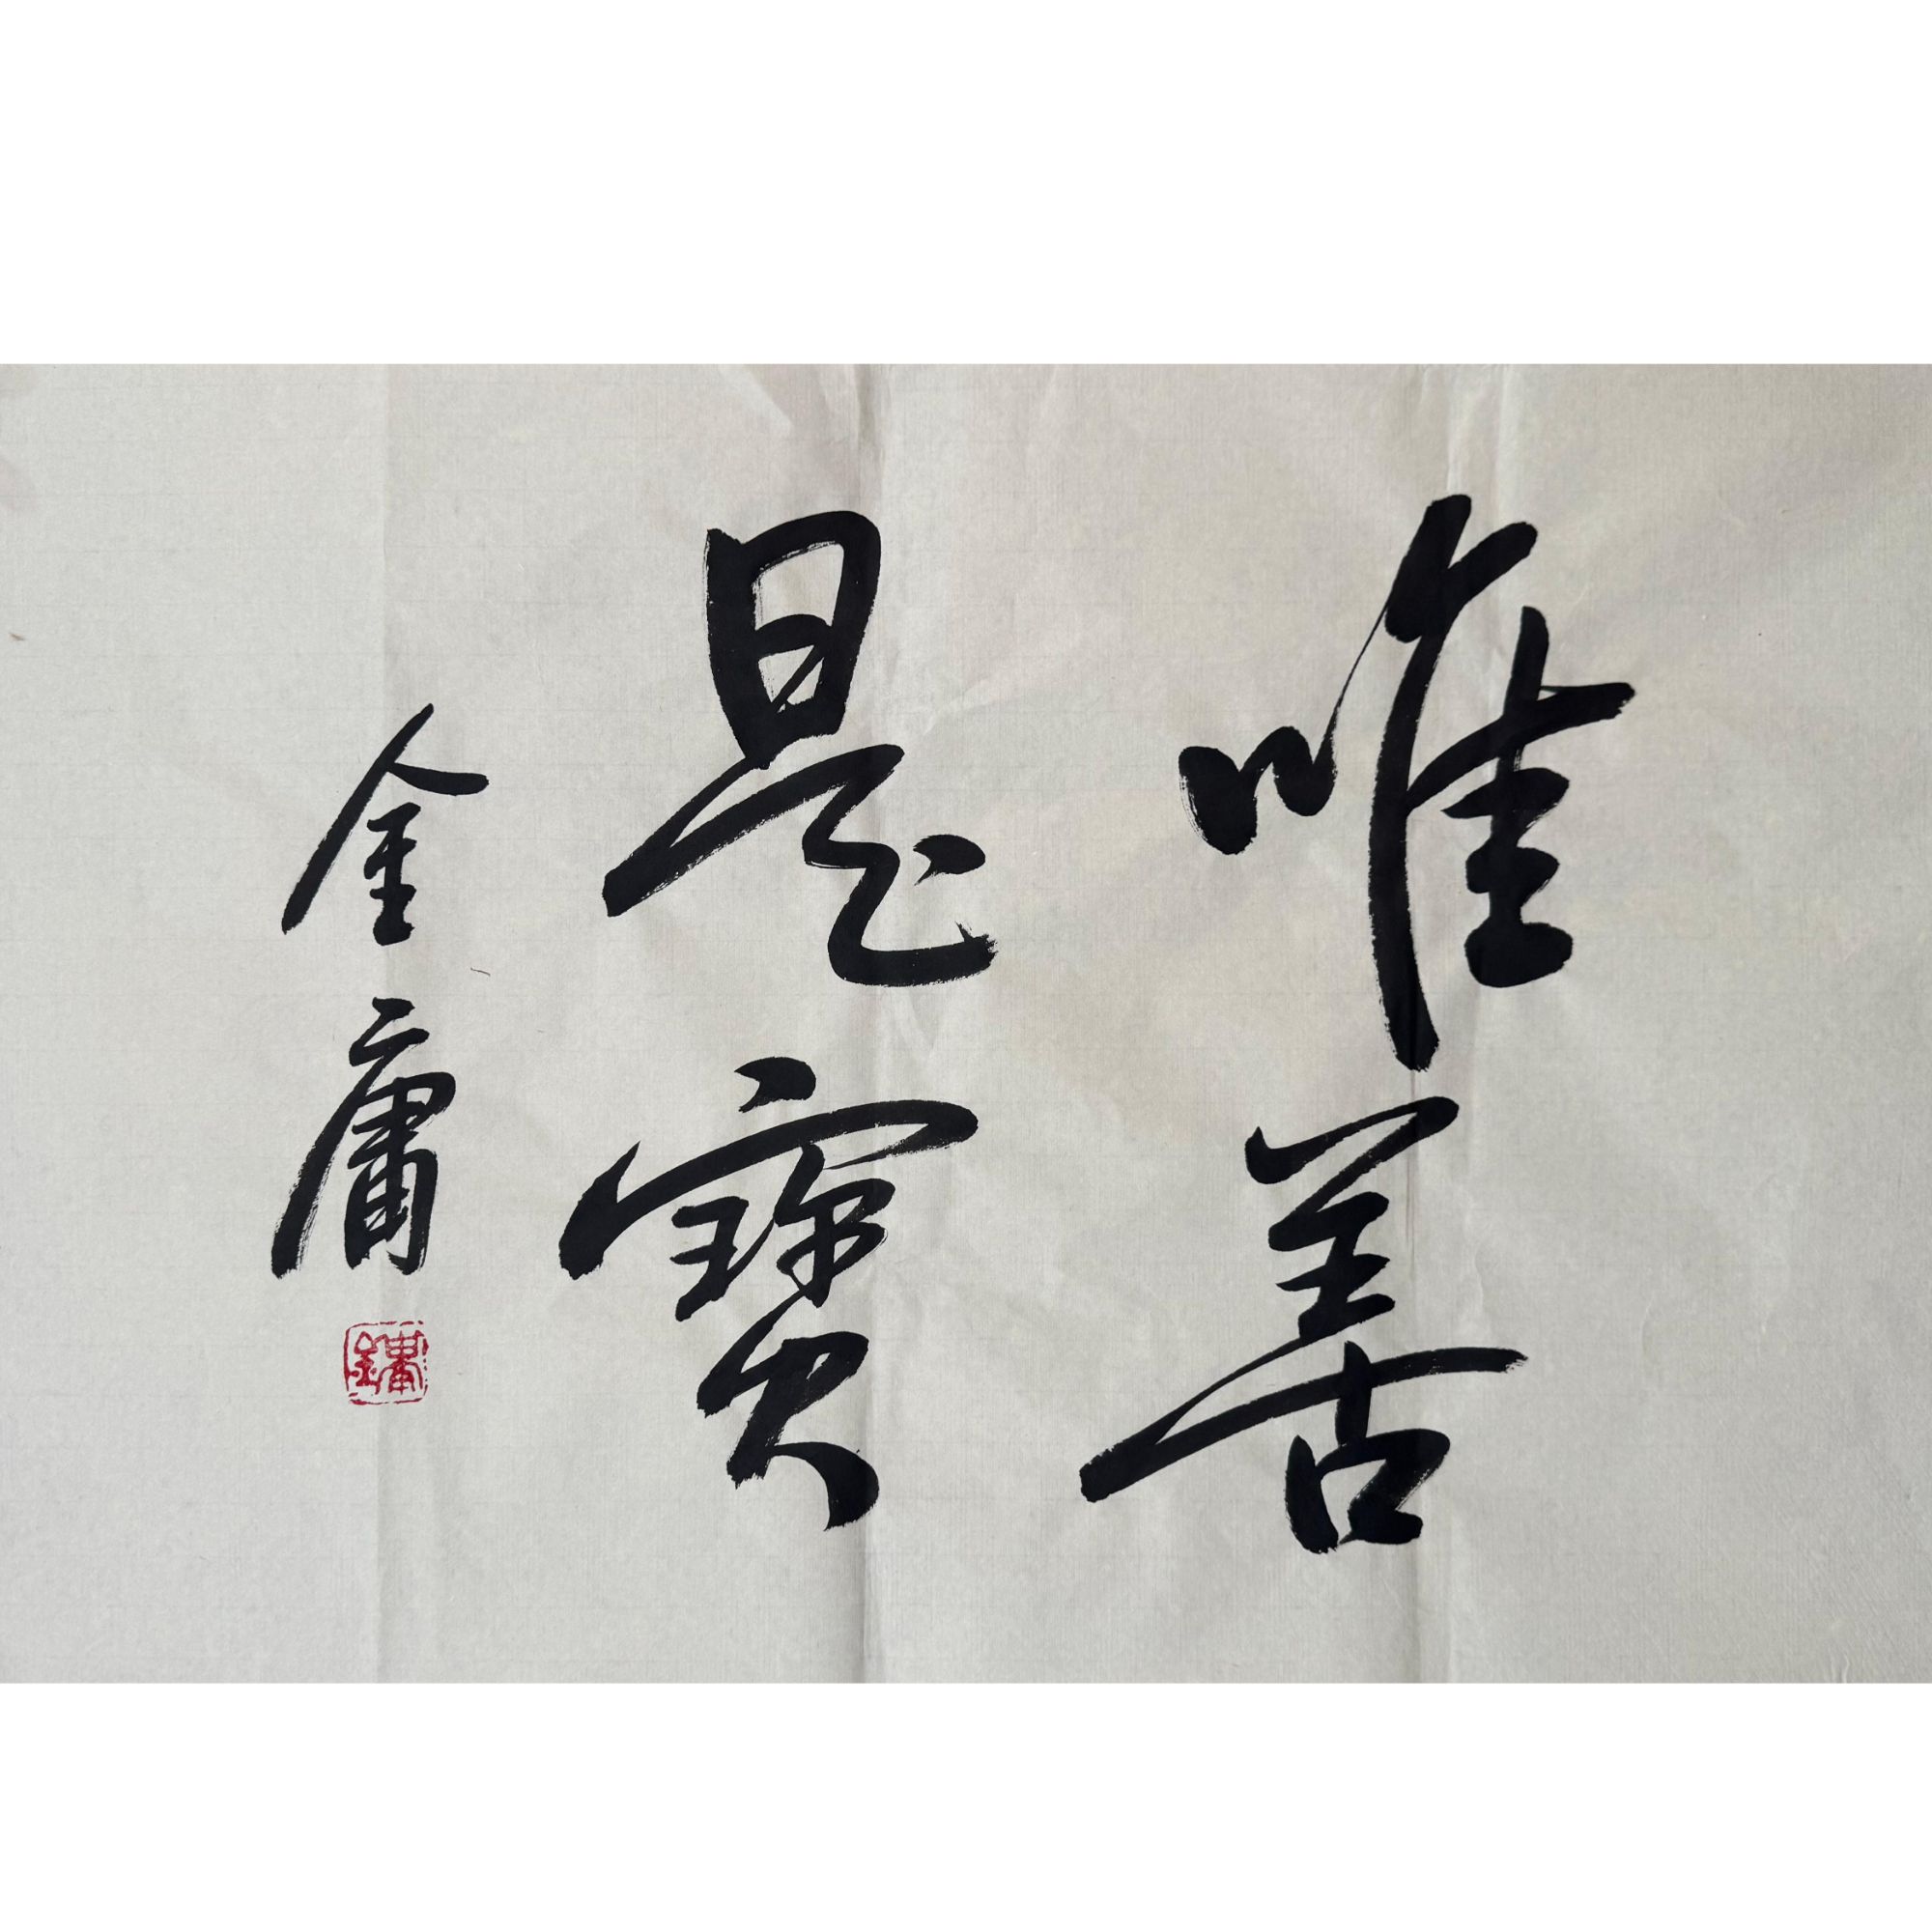 唯善
是寶
金庸
金庸